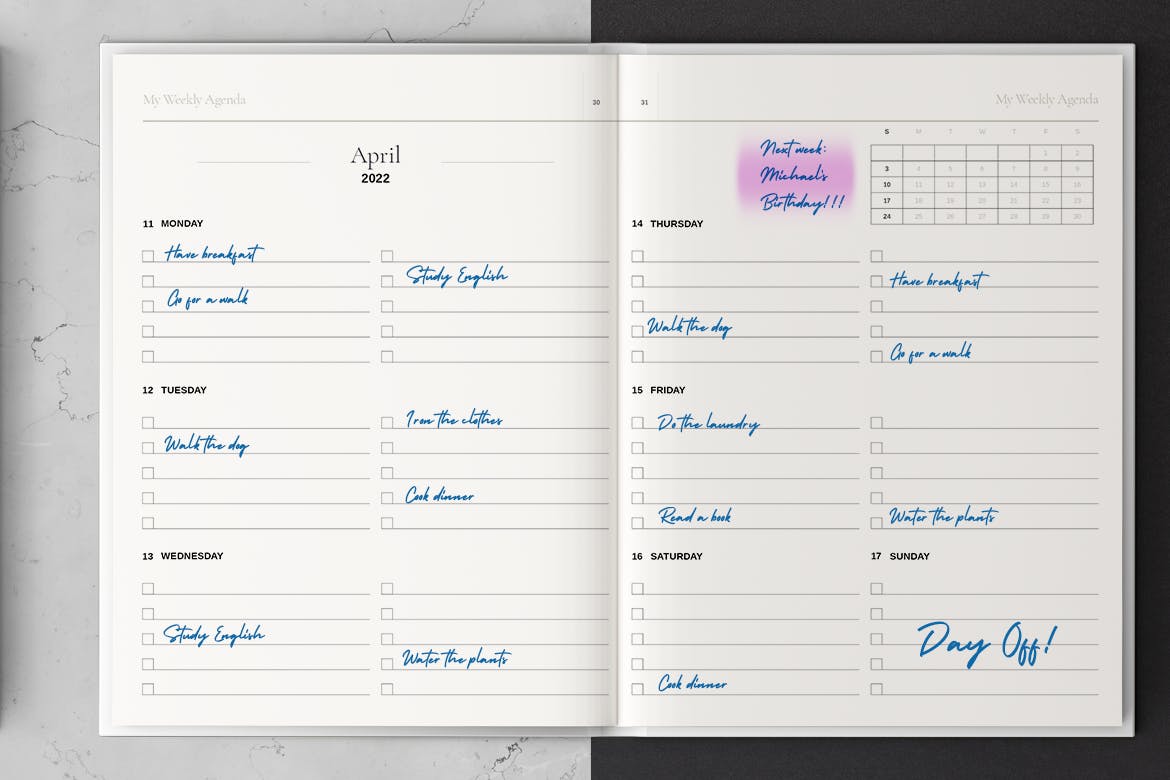 My Weekly Agenda
30
April
2022
11 MONDAY
Have breakfast
Study English
Go for a walk
12 TUESDAY
Iron the clothes
Walk the dog
Cook dinner
13 WEDNESDAY
Study English
Water the plants
31
My Weekly Agenda
Next week:
Michael's
Birthday!!!
S M T W T F S
1 2
3 4 5 6 7 8 9
10 11 12 13 14 15 16
17 18 19 20 21 22 23
24 25 26 27 28 29 30
14 THURSDAY
Have breakfast
Walk the dog
Go for a walk
15 FRIDAY
Do the laundry
Read a book
Water the plants
16 SATURDAY
Cook dinner
17 SUNDAY
Day Off!